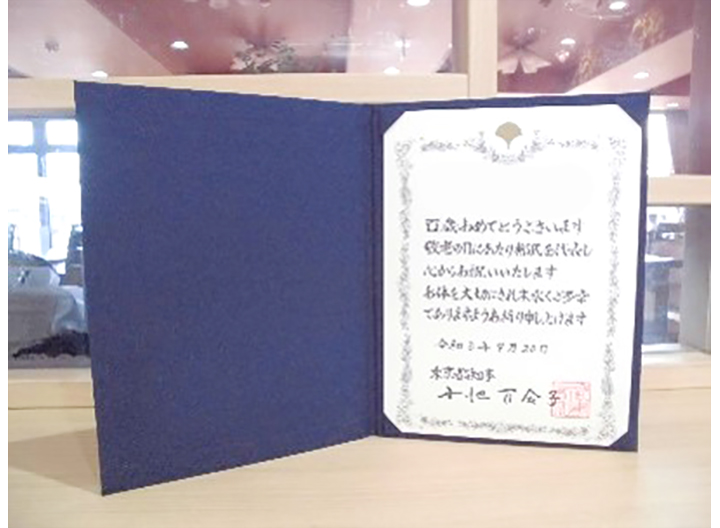 百歳おめでとうございます
敬老の日にあたり都民を代表し
心からお祝いいたします
お体を大切にされ末永くご多幸
でありますようお祈り申し上げます
令和三年9月20日
東京都知事
小池百合子